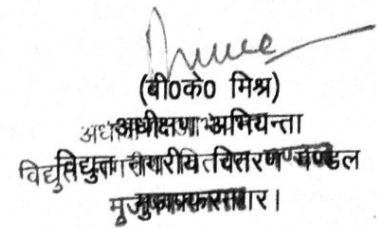 (बी०के० मिश्र)
अधीक्षण अभियन्ता
विद्युत नगरीय वितरण मण्डल
मुजफ्फरनगर।